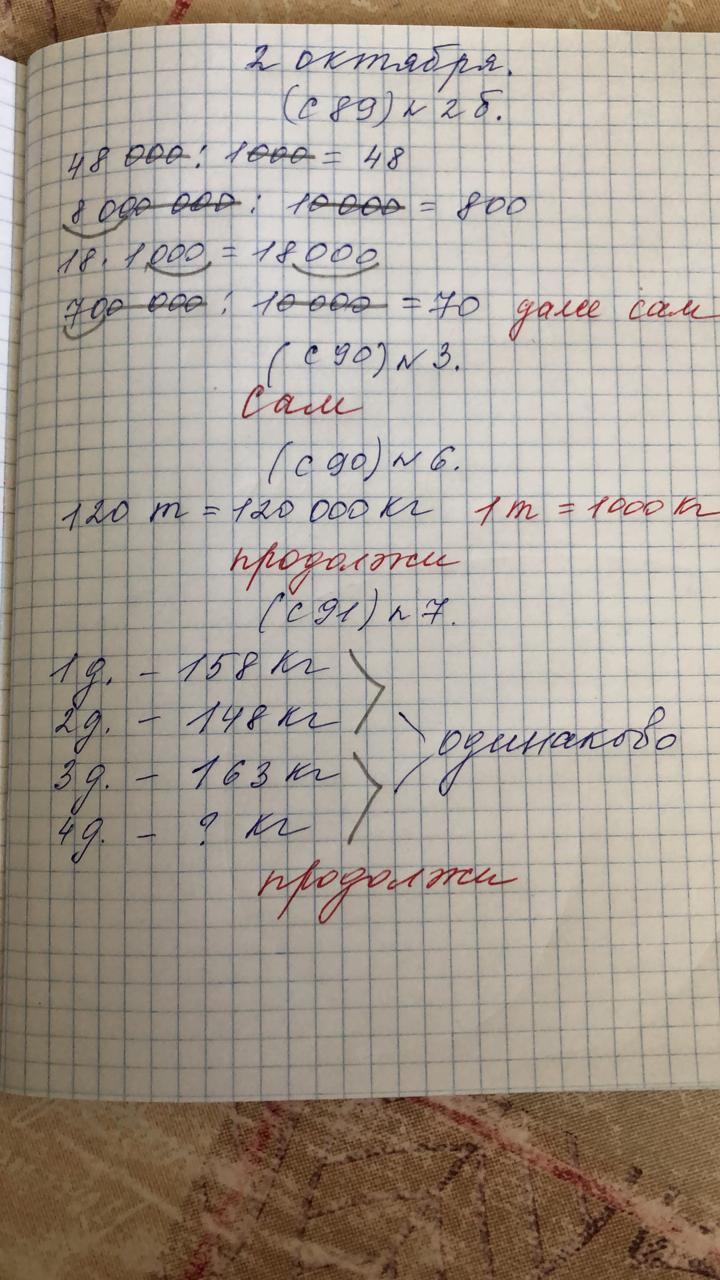 2 октября.
(с 89) № 2 б.
48 000 : 1000 = 48
8 000 000 : 10 000 = 800
18 · 1 000 = 18 000
700 000 : 10 000 = 70 далее сам
(с 90) № 3.
Сам
(с 90) № 6.
120 т = 120 000 кг 1 т = 1000 кг
продолжи
(с 91) № 7.
1д. – 158 кг
2д. – 148 кг
одинаково
3д. – 163 кг
4д. – ? кг
продолжи